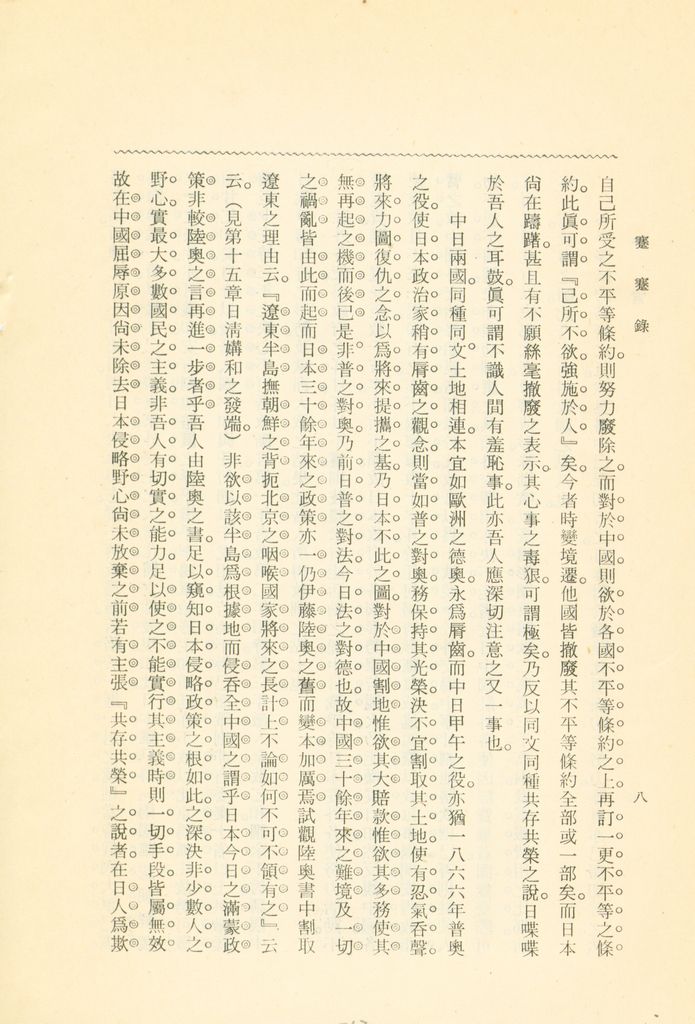 蹇蹇錄
八
自己所受之不平等條約。則努力廢除之。而對於中國則欲於各國不平等條約之上再訂一更不平等之條
約。此眞可謂『己所不欲強施於人』矣。今者時變境遷。他國皆撤廢其不平等條約全部或一部矣。而日本
尙在躊躇。甚且有不願絲毫撤廢之表示。其心事之毒狠。可謂極矣。乃反以同文同種共存共榮之說。日喋喋
於吾人之耳鼓。眞可謂不識人間有羞恥事。此亦吾人應深切注意之又一事也。
中日兩國。同種同文。土地相連。本宜如歐洲之德奧。永爲脣齒。而中日甲午之役。亦猶一八六六年普奧
之役。使日本政治家稍有脣齒之觀念。則當如普之對奧。務保持其光榮。決不宜割取其土地。使有忍氣吞聲。
將來力圖復仇之念。以爲將來提攜之基。乃日本不此之圖。對於中國割地惟欲其大。賠款惟欲其多。務使其
無再起之機而後已。是非普之對奧。乃前日普之對法。今日法之對德也。故中國三十餘年來之難境及一切
之禍亂皆由此而起。而日本三十餘年來之政策亦一仍伊藤陸奧之舊而變本加厲焉。試觀陸奧書中割取
遼東之理由云。『遼東半島撫朝鮮之背扼北京之咽喉國家將來之長計上不論如何不可不領有之』云
云。(見第十五章日淸媾和之發端。)非欲以該半島爲根據地而侵吞全中國之謂乎。日本今日之滿蒙政
策非較陸奧之言再進一步者乎。吾人由陸奧之書。足以窺知日本侵略政策之根如此之深。決非少數人之
野心。實最大多數國民之主義。非吾人有切實之能力足以使之不能實行其主義時。則一切手段皆屬無效。
故在中國屈辱原因尙未除去日本侵略野心尙未放棄之前若有主張『共存共榮』之說者。在日人爲欺